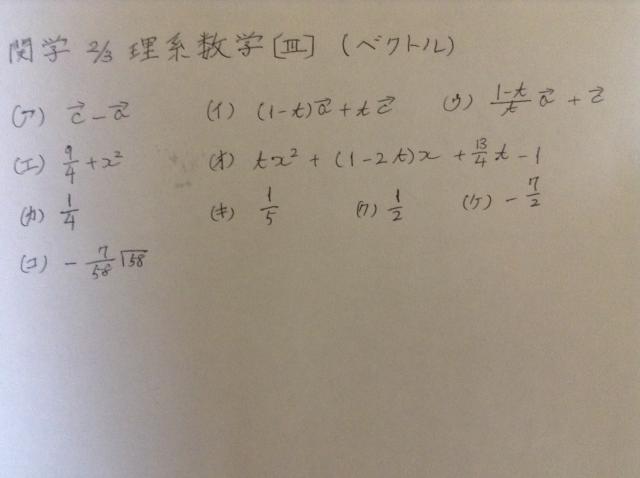 関学 2/3 理系数学[Ⅲ] (ベクトル)
(ア) c⃗ − a⃗ (イ) (1−t)a⃗ + t c⃗ (ウ) (1−t)/t a⃗ + c⃗
(エ) 9/4 + x² (オ) tx² + (1−2t)x + 13/4 t − 1
(カ) 1/4 (キ) 1/5 (ク) 1/2 (ケ) − 7/2
(コ) − 7/58 √58